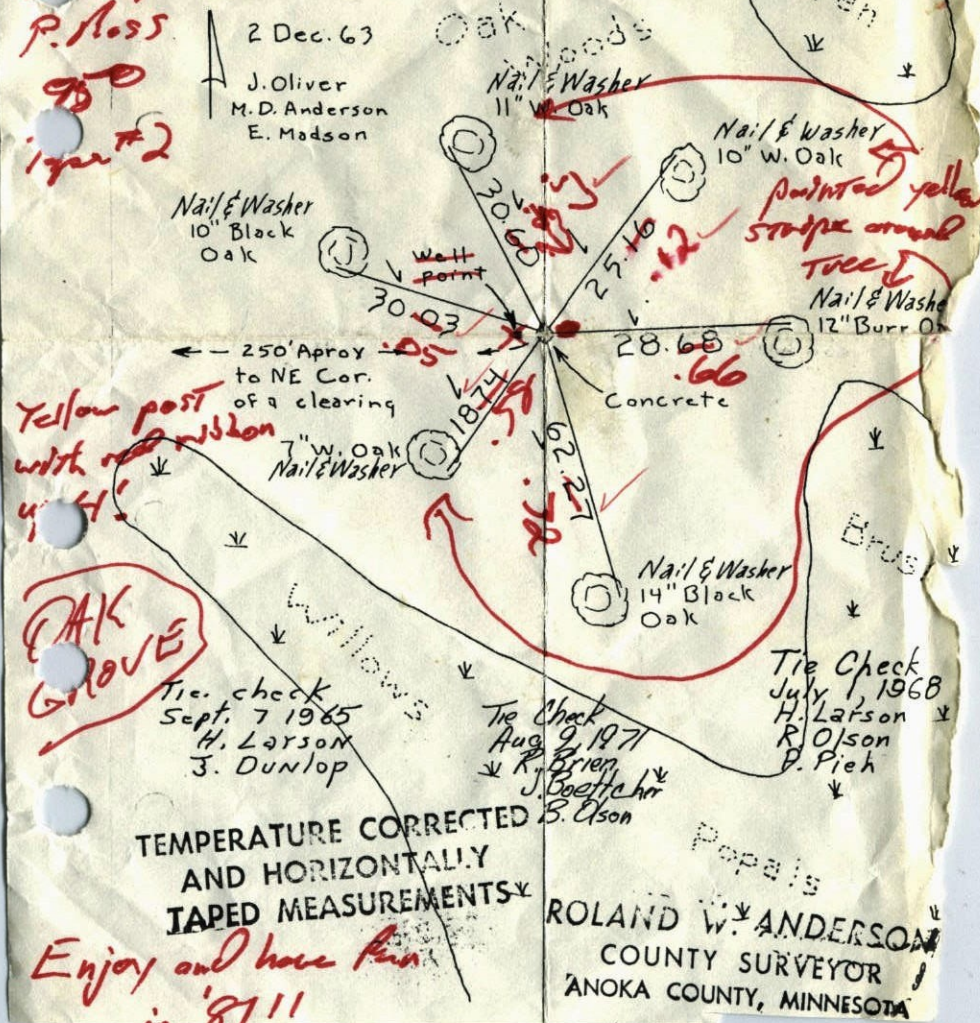 P. Ross
95°
Tape #2
2 Dec. 63
J. Oliver
M. D. Anderson
E. Madson
Oak
Woods
Nail & Washer
11" W. Oak
Nail & Washer
10" W. Oak
painted yello
stripe around
Tree
Nail & Washer
10" Black
Oak
Nail & Washe
12" Burr O
Well
point
30.60
.53
25.16
.12
30.03
.05
28.68
.66
18.74
62.27
Concrete
← 250' Aprox →
to NE Cor.
of a clearing
Yellow post
with red ribbon
7" W. Oak
Nail & Washer
Nail & Washer
14" Black
Oak
Brus
Willows
OAK
GROVE
Tie. check
Sept. 7 1965
H. Larson
J. Dunlop
Tie Check
Aug 9, 1971
R. Brien
J. Boettcher
B. Olson
Tie Check
July 1, 1968
H. Larson
R. Olson
P. Pieh
Popals
TEMPERATURE CORRECTED
AND HORIZONTALLY
TAPED MEASUREMENTS
ROLAND W. ANDERSON
COUNTY SURVEYOR
ANOKA COUNTY, MINNESOTA
Enjoy and have Fun
in '81!!